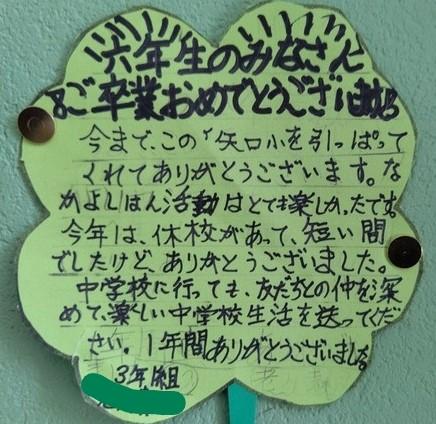 六年生のみなさん
ご卒業おめでとうございます
今まで、この矢口小を引っぱって
くれてありがとうございます。な
かよしはん活動はとても楽しかったです。
今年は、休校があって、短い間
でしたけど、ありがとうございました。
中学校に行っても、友だちとの仲を深
めて、楽しい中学校生活を送ってくだ
さい。1年間ありがとうございました。
3年 組